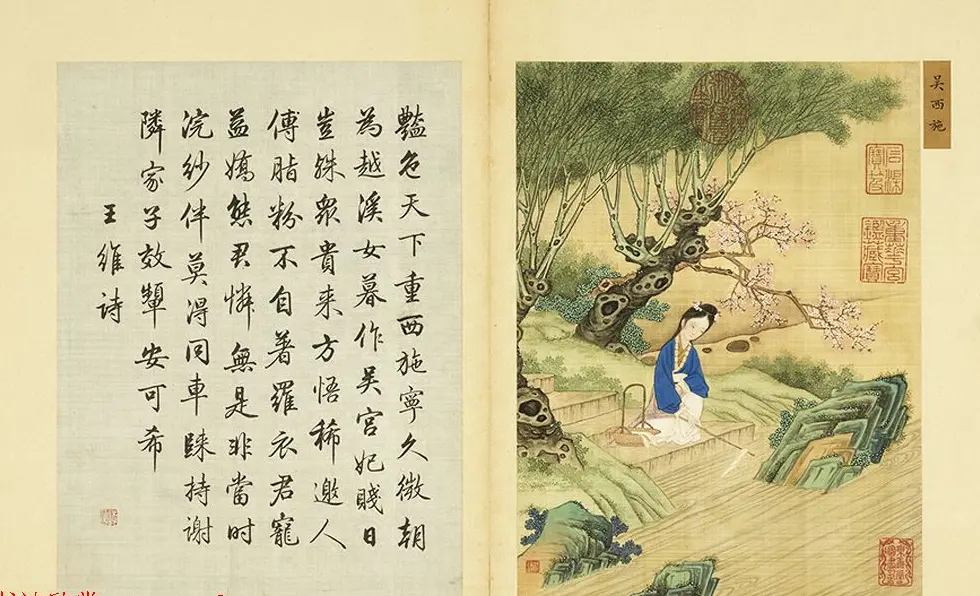 吴西施
豔色天下重西施寧久微朝
為越溪女暮作吴宫妃賤日
豈殊衆貴来方悟稀邀人
傅脂粉不自著羅衣君寵
益嬌態君憐無是非當時
浣紗伴莫得同車歸持謝
隣家子效顰安可希
王維詩
石渠寶笈
重華宮鑑藏寶